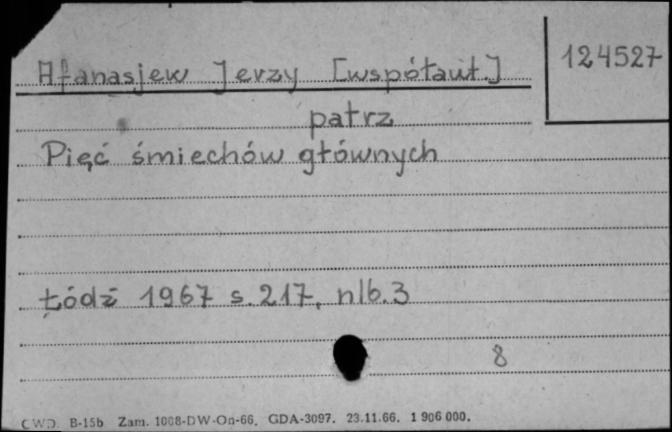 Afanasjew Jerzy [współaut.]
124527
patrz
Pięć śmiechów głównych
Łódź 1967 s. 217, nlb. 3
8
CWD. B-15b Zam. 1008-DW-On-66. GDA-3097. 23.11.66. 1 906 000.